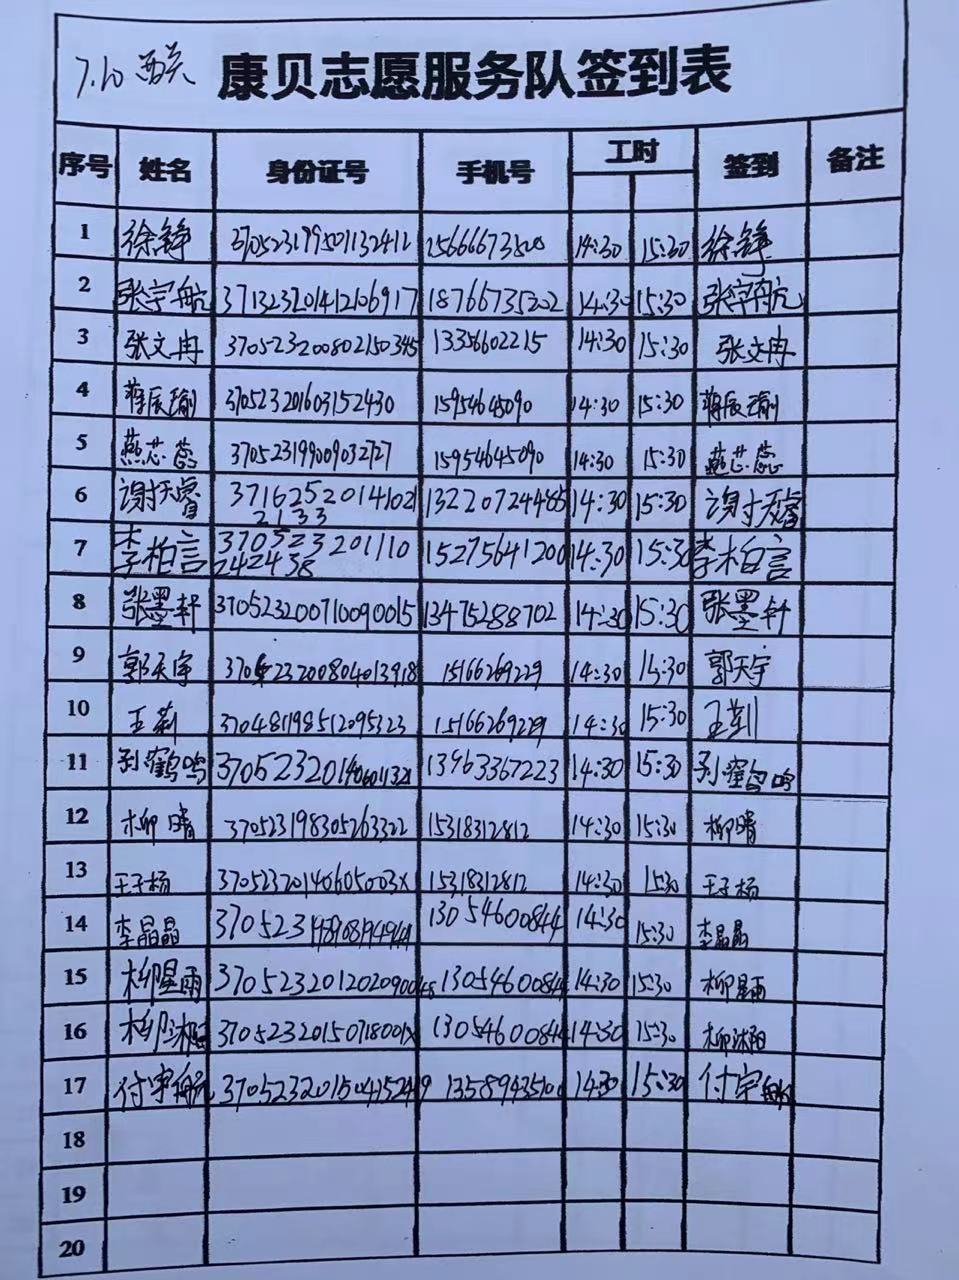 7.10
康贝志愿服务队签到表
序号 姓名 身份证号 手机号 工时 签到 备注
1 徐铮 370523199501132412 14:30 15:30 徐铮
2 张宇航 371323201412106917 14:30 15:30 张宇航
3 张文冉 370523200802150345 13356602215 14:30 15:30 张文冉
4 蒋辰瑜 370523201603152430 15954645090 14:30 15:30 蒋辰瑜
5 燕芯蕊 370523199009032727 15954645090 14:30 15:30 燕芯蕊
6 谢天睿 37162520141021 13220724485 14:30 15:30 谢天睿
2133
7 李柏言 370523201110 15275641200 14:30 15:30 李柏言
242438
8 张墨轩 370523200710090015 13475288702 14:30 15:30 张墨轩
9 郭天宇 370523200804013918 15166269229 14:30 14:30 郭天宇
10 王莉 370481198512095323 15166269229 14:30 15:30 王莉
11 鹤鸣 370523201406011321 13963367223 14:30 15:30 鹤鸣
12 柳晴 370523198305263322 15318312812 14:30 15:30 柳晴
13 王子杨 37052320140605003X 15318312812 14:30 15:30 王子杨
14 李晶晶 13054600844 14:30 15:30 李晶晶
15 柳星雨 13054600844 14:30 15:30 柳星雨
16 柳沐阳 37052320150718001X 13054600844 14:30 15:30 柳沐阳
17 付宇航 14:30 15:30 付宇航
18
19
20